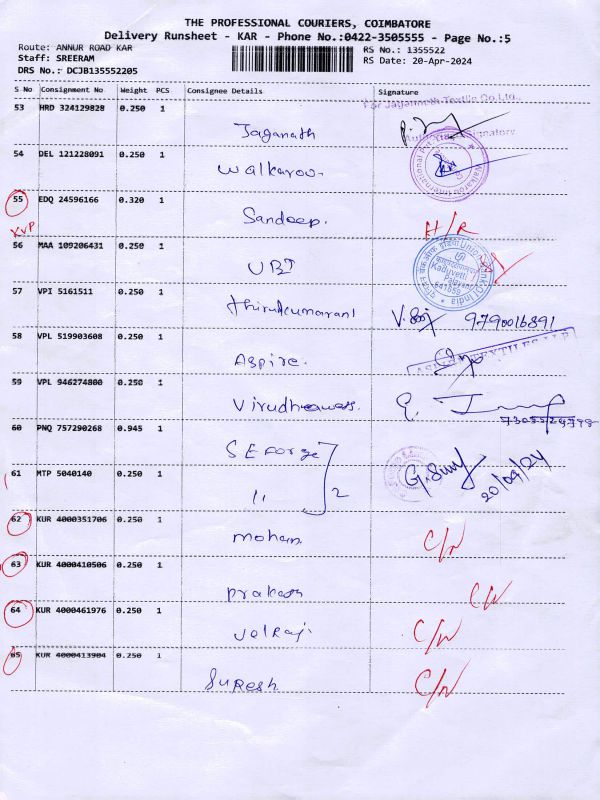 THE PROFESSIONAL COURIERS, COIMBATORE
Delivery Runsheet - KAR - Phone No.:0422-3505555 - Page No.:5
Route: ANNUR ROAD KAR
RS No.: 1355522
Staff: SREERAM
RS Date: 20-Apr-2024
DRS No.: DCJB135552205
S No Consignment No Weight PCS Consignee Details Signature
53 HRD 324129828 0.250 1
For Jagannath Textile Co Ltd.,
Authorised Signatory
Jaganath
54 DEL 121228091 0.250 1
Walkaroo
Walkaroo International Pvt Ltd
55 EDQ 24596166 0.320 1
Sandeep. H/R
KVP
56 MAA 109206431 0.250 1
UBI
Union Bank Of India
641659
57 VPI 5161511 0.250 1
thirukumaran 9790016891
58 VPL 519903608 0.250 1
Aspire.
59 VPL 946274800 0.250 1
60 PNQ 757290268 0.945 1
SEForge
61 MTP 5040140 0.250 1
" 2
20/04/24
62 KUR 4000351706 0.250 1
mohan C/N
63 KUR 4000410506 0.250 1
prakash C/N
64 KUR 4000461976 0.250 1
velraj C/N
65 KUR 4000413904 0.250 1
Suresh C/N